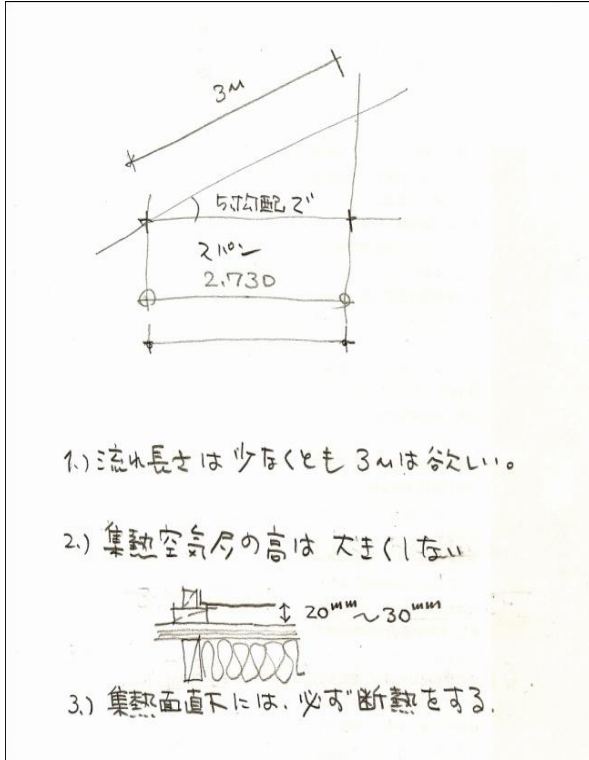 3M
5寸勾配で
スパン
2.730
1.) 流れ長さは少なくとも 3mは欲しい。
2.) 集熱空気層の高は 大きくしない
20mm～30mm
3.) 集熱面直下には、必ず断熱をする.